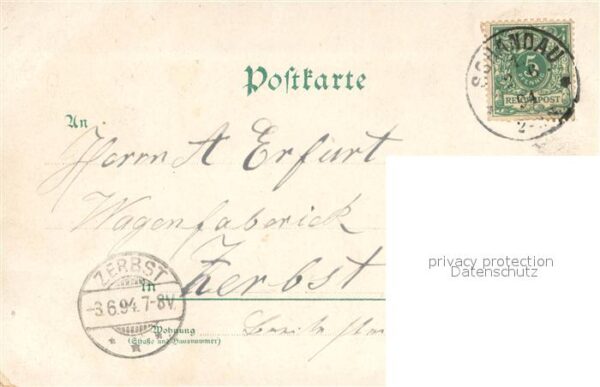 Postkarte
SCHANDAU
5
REICHSPOST
An
Herrn A Erfurt
Wagenfaberick
in Zerbst
ZERBST
-3.6.94.7-8V.
privacy protection
Datenschutz
Wohnung
(Straße und Hausnummer)